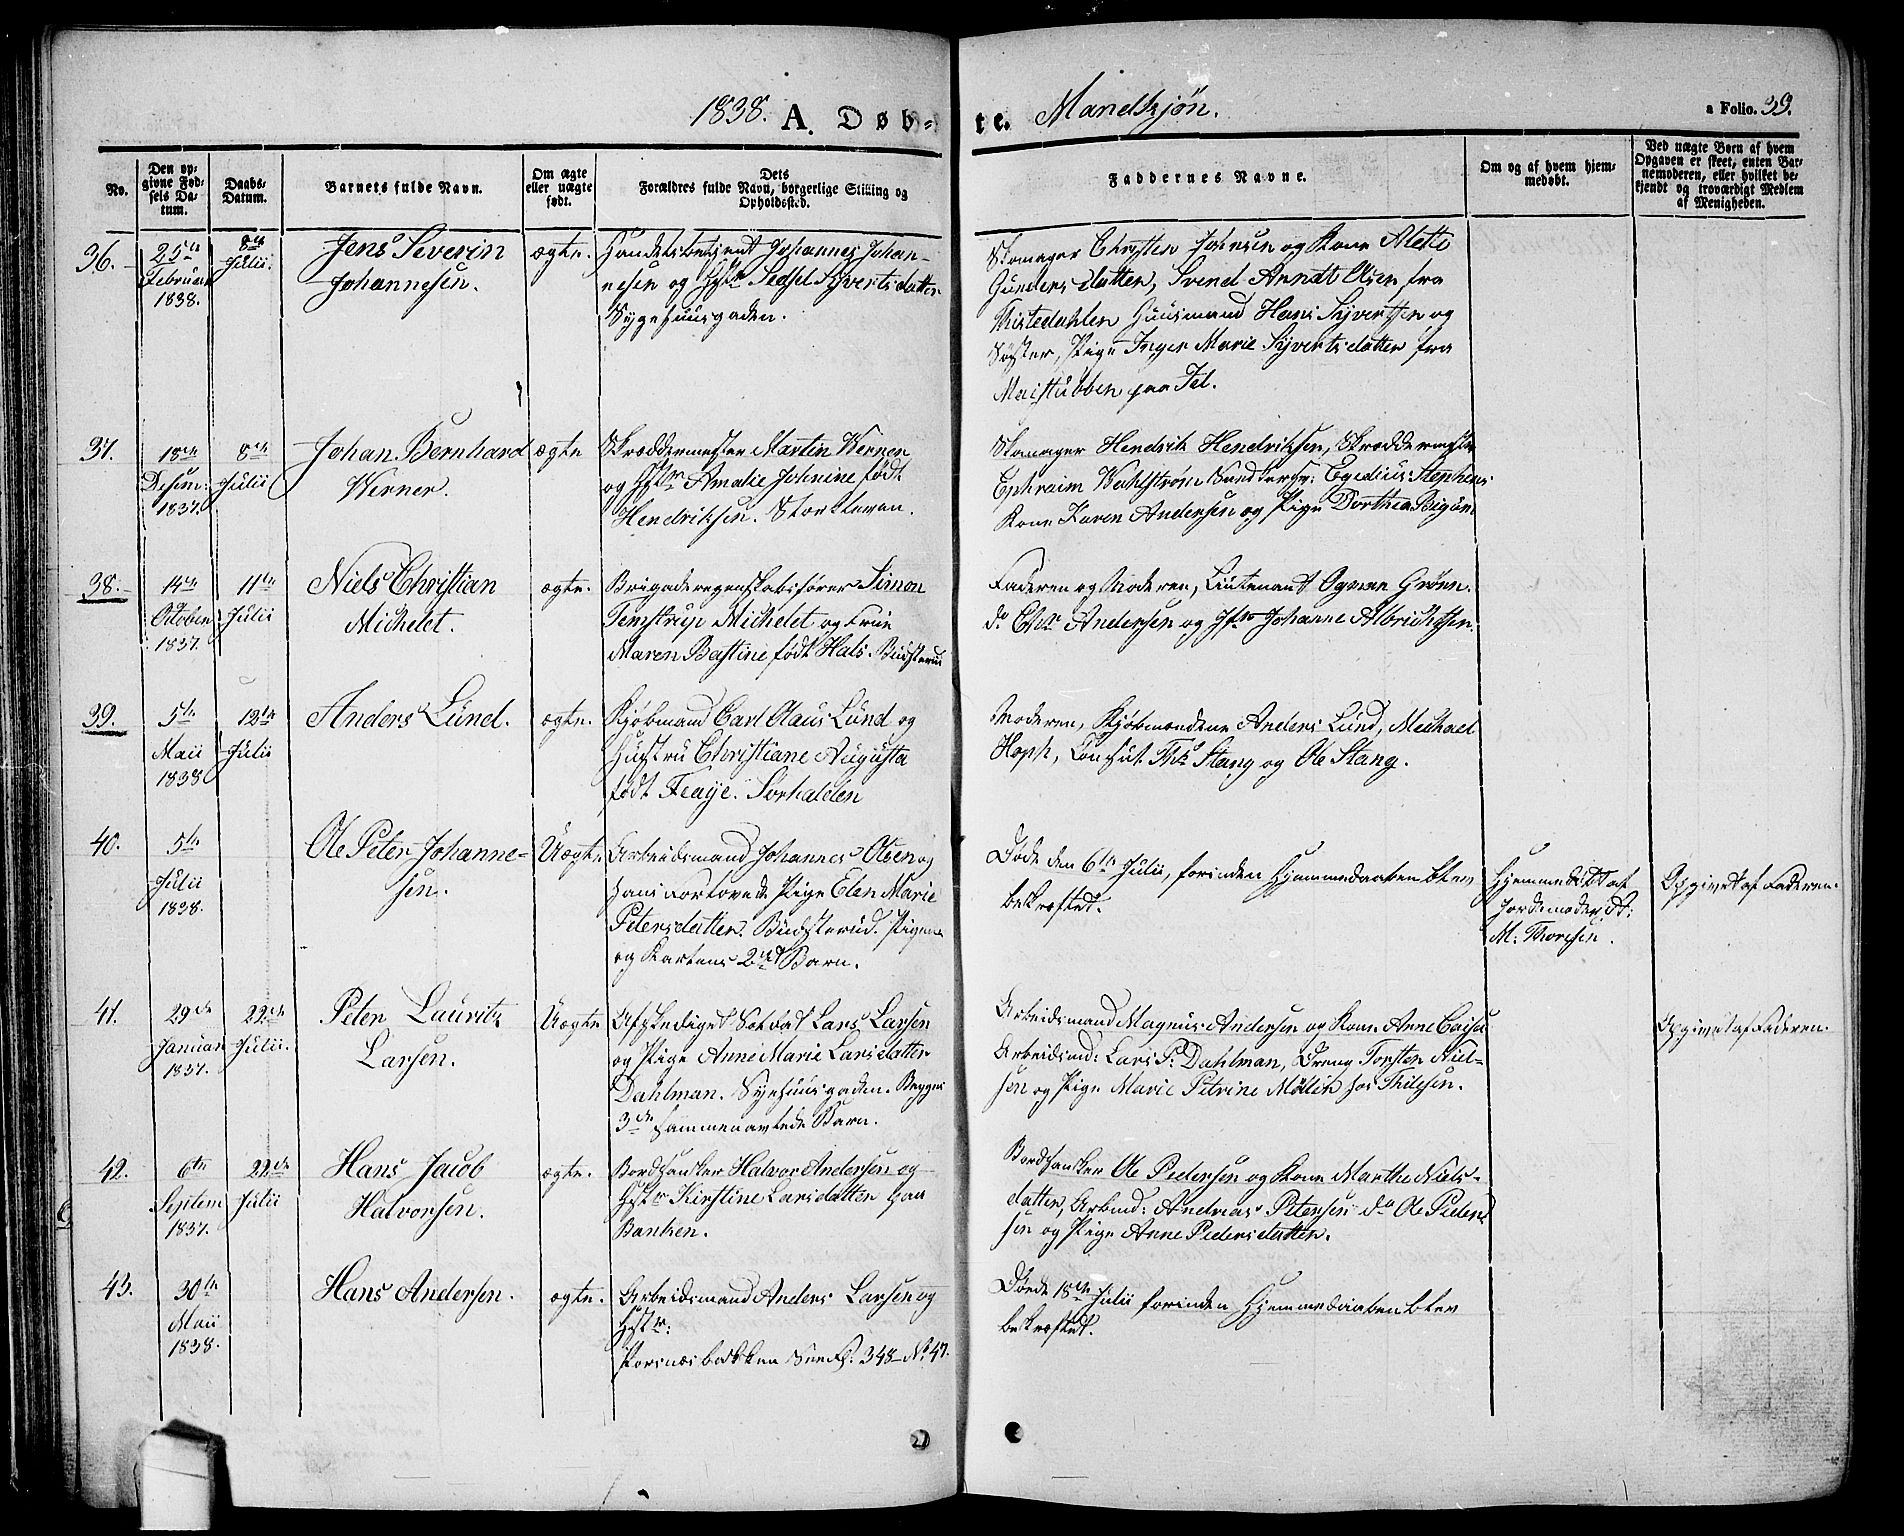 1838. A. Døb-
te. Mandkjøn.
a Folio. 39.
No.
Den op-
givne Fød-
sels Da-
tum.
Daabs-
Datum.
Barnets fulde Navn.
Om ægte
eller uægte
født.
Dets
Forældres fulde Navn, borgerlige Stilling og
Opholdssted.
Faddernes Navne.
Om og af hvem hjem-
medøbt.
Ved uægte Børn af hvem
Opgaven er skeet, enten Bar-
nemoderen, eller hvilket be-
kjendt og troværdigt Medlem
af Menigheden.
36.
25de
Februar
1838.
8de
Julii.
Jens Severin
Johannesen.
ægte.
Handelsbetjent Johannes Johan-
nesen og Hstr Sedsel Syvertsdatter
Sygehuusgaden.
Skomager Christen Johnsen og Kone Alette
Gundersdatter, Svend Arndt Olsen, fra
Tistedahlen Huusmand Hans Syvertsen og
Søster, Pige Inger Marie Syvertsdatter fra
Maistubben paa Id.
37.
18de
Desem:
1837.
8de
Julii
Johan Bernhard
Werner.
ægte
Skræddermester Martin Werner
og Hstr Amalie Johnine født
Hendriksen.
Skomager Hendrik Hendriksen, Skræddermester
Ephraim Wahlstrøm Egidius Stephens
Kone Karen Andersen og Pige Dorthea
38.
14de
October
1837.
11te
Julii
Niels Christian
Michelet.
ægte.
Brigaderegenskabsfører Simon
Temstrup Michelet og Frue
Maren Bastine født Hals. Budsterud
Faderen og Moderen, Lieutenant Grønn.
do Chr Andersen og Jfro Johanne Albrichtsen.
39.
5te
Maii
1838
12te
Julii
Anders Lund.
ægte.
Kjøbmand Carl Olaus Lund og
Hustru Christiane Augusta
født Feaye. Sørhalden
Moderen, Kjøbmændene Anders Lund, Michael
Hoph, Consul Ths Stang og Ole Stang.
40.
5te
Julii
1838.
Ole Peter Johanne-
sen.
Uægte
Arbeidsmand Johannes Olsen og
hans Forlovede Pige Elen Marie
Petersdatter. Budsterud. Pigens
og Karlens 2det Barn.
Døde den 6te Julii, forinden Hjemmedaaben blev
bekræftet.
Hjemmedøbt af
Jordemoder A:
M: Thoresen.
Opgivet af Faderen.
41.
29de
Januar
1837.
22de
Julii.
Peter Lauritz
Larsen.
Uægte
Afskediget Soldat Lars Larsen
og Pige Anne Marie Larsdatter
Dahlman. Sygehuusgaden. Begges
3de sammenavlede Barn.
Arbeidsmand Magnus Andersen og Kone Anne Caisa
Arbeidsmd: Lars P: Dahlman, Dreng Torsten Niel-
sen og Pige Marie Petrine Møller hos Thilesen.
Opgivet af Faderen.
42.
6te
Septem
1837.
22de
Julii
Hans Jacob
Halvorsen.
ægte.
Bordhanker Halvor Andersen og
Hstr Kirstine Larsdatter paa
Banken.
Bordhanker Ole Pedersen og Kone Marthe Niels-
datter, Arbmd: Andreas Petersen do Ole Peder-
sen og Pige Anne Pedersdatter.
43.
30te
Maii
1838.
Hans Andersen.
ægte.
Arbeidsmand Anders Larsen og
Hstr:
Porsnæsbakken See F. 348 No 47.
Døde 18de Julii forinden Hjemmedaaben blev
bekræftet.